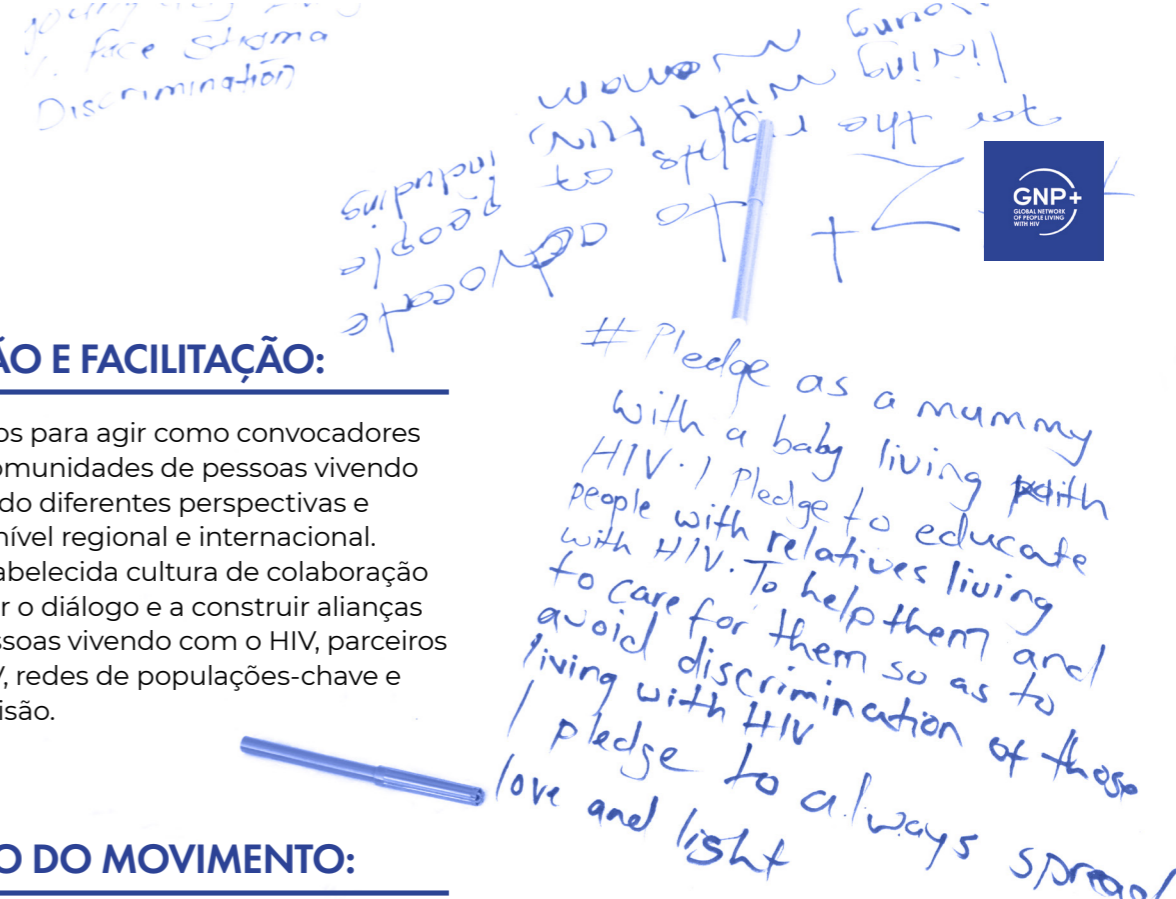 face stigma
Discrimination
to advocate
for the rights of people
living with HIV, including
young woman
GNP+
GLOBAL NETWORK
OF PEOPLE LIVING
WITH HIV
ÃO E FACILITAÇÃO:
os para agir como convocadores
omunidades de pessoas vivendo
do diferentes perspectivas e
nível regional e internacional.
abelecida cultura de colaboração
r o diálogo e a construir alianças
ssoas vivendo com o HIV, parceiros
V, redes de populações-chave e
isão.
O DO MOVIMENTO:
#Pledge as a mummy
with a baby living with
HIV. I Pledge to educate
people with relatives living
with HIV. To help them and
to care for them so as to
avoid discrimination of those
living with HIV
I pledge to always spread
love and light